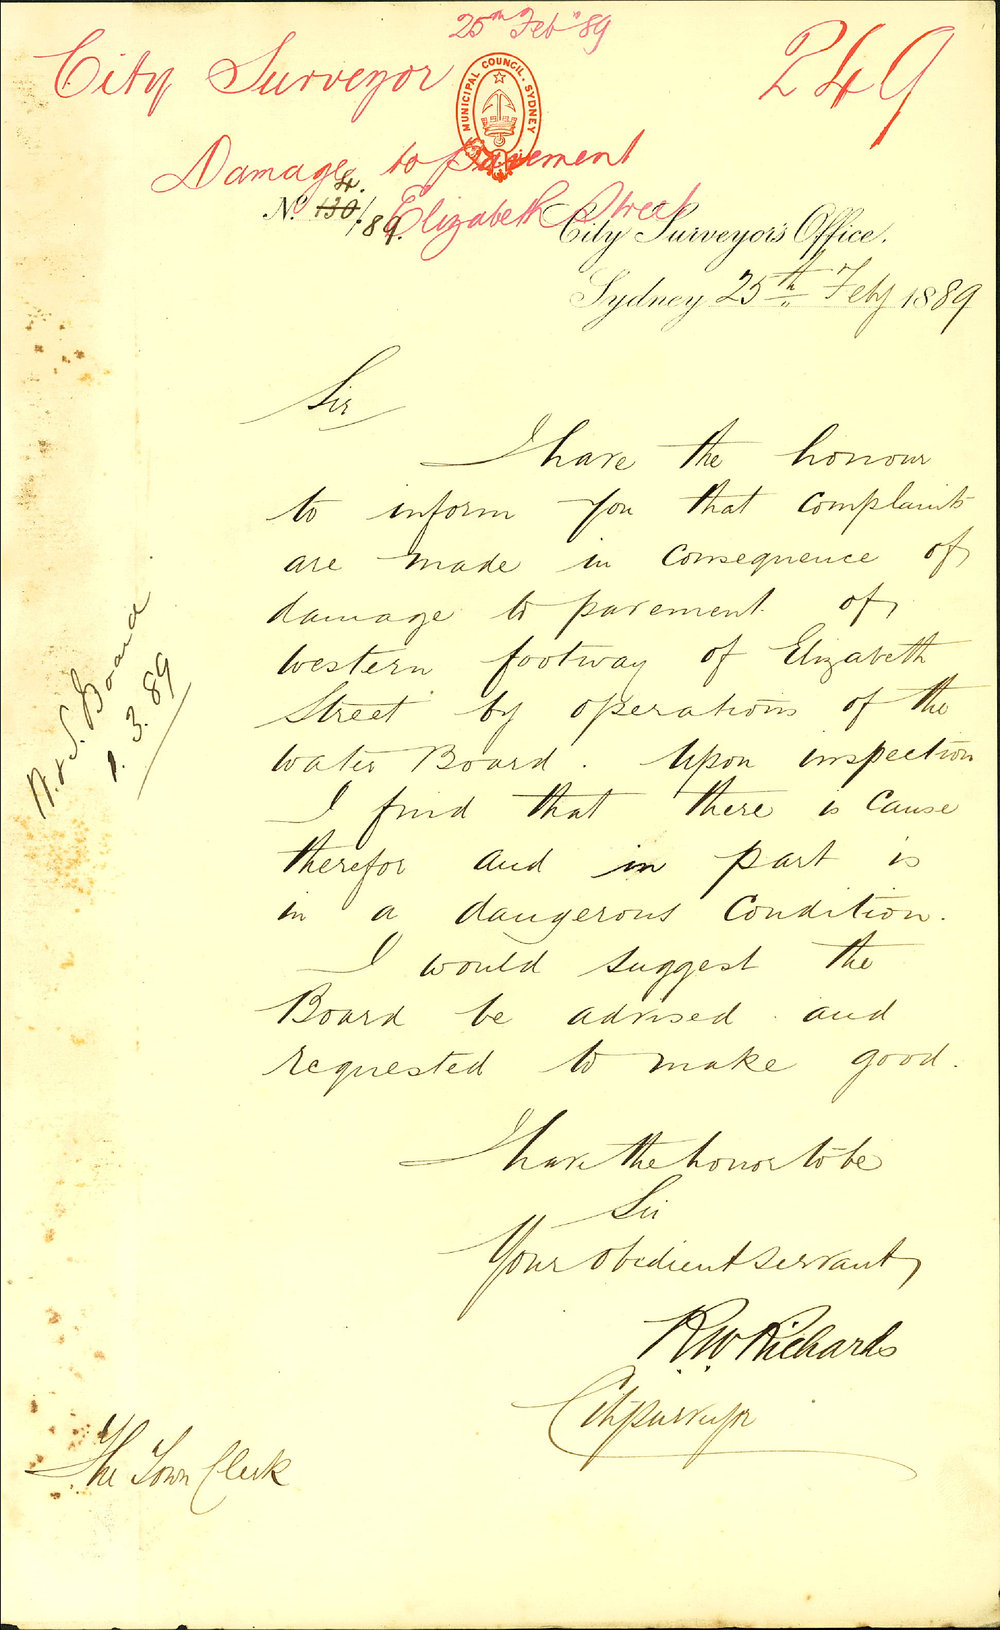 25th Feb '89
City Surveyor
249
MUNICIPAL COUNCIL. SYDNEY
Damage to Pavement
Elizabeth Street
No. 130/4.89.
City Surveyor's Office.
Sydney 25th Feby 1889
Sir
I have the honour
to inform you that complaints
are made in consequence of
damage to pavement of
western footway of Elizabeth
Street by operations of the
Water Board. Upon inspection
I find that there is cause
therefor and in part is
in a dangerous condition.
I would suggest the
Board be advised and
requested to make good.
I have the honor to be
Sir
Your obedient servant
R.W. Richards
City Surveyor
The Town Clerk
W. & S. Board
1.3.89